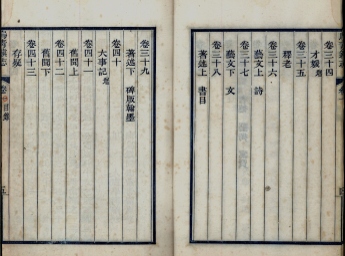 卷三十四
才媛
卷三十五
釋老
卷三十六
藝文上 詩
卷三十七
藝文下 文
卷三十八
著述上 書目
卷三十九
著述下 碑版翰墨
卷四十
大事記
卷四十一
舊聞上
卷四十二
舊聞下
卷四十三
存疑